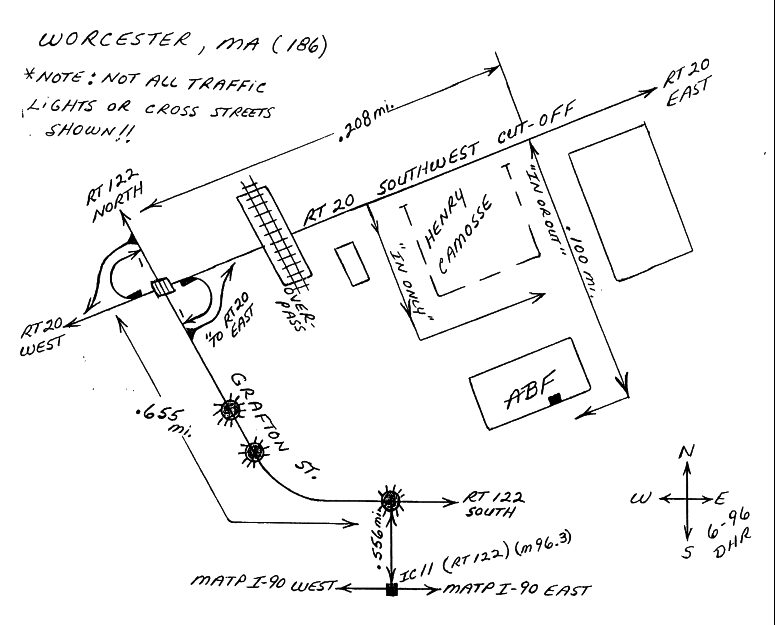 WORCESTER, MA (186)
*NOTE: NOT ALL TRAFFIC
LIGHTS OR CROSS STREETS
SHOWN!!
.208 mi.
RT 20
EAST
RT 122
NORTH
RT 20 SOUTHWEST CUT-OFF
HENRY
CAMOSSE
"IN OR OUT"
.100 mi.
"IN ONLY"
OVER-
PASS
"TO RT 20
EAST
RT 20
WEST
.655
mi.
GRAFTON ST.
ABF
RT 122
SOUTH
.556 mi.
IC 11 (RT 122) (m96.3)
MATP I-90 WEST
MATP I-90 EAST
N
W
E
S
6-96
DHR